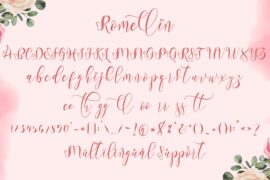 Romellin
ABCDEFGHIJKLMNOPQRSTUVWXYZ
abcdefghijklmnopqrstuvwxyz
ee th gg ll oo rr ss tt
1234567890
Multilingual Support